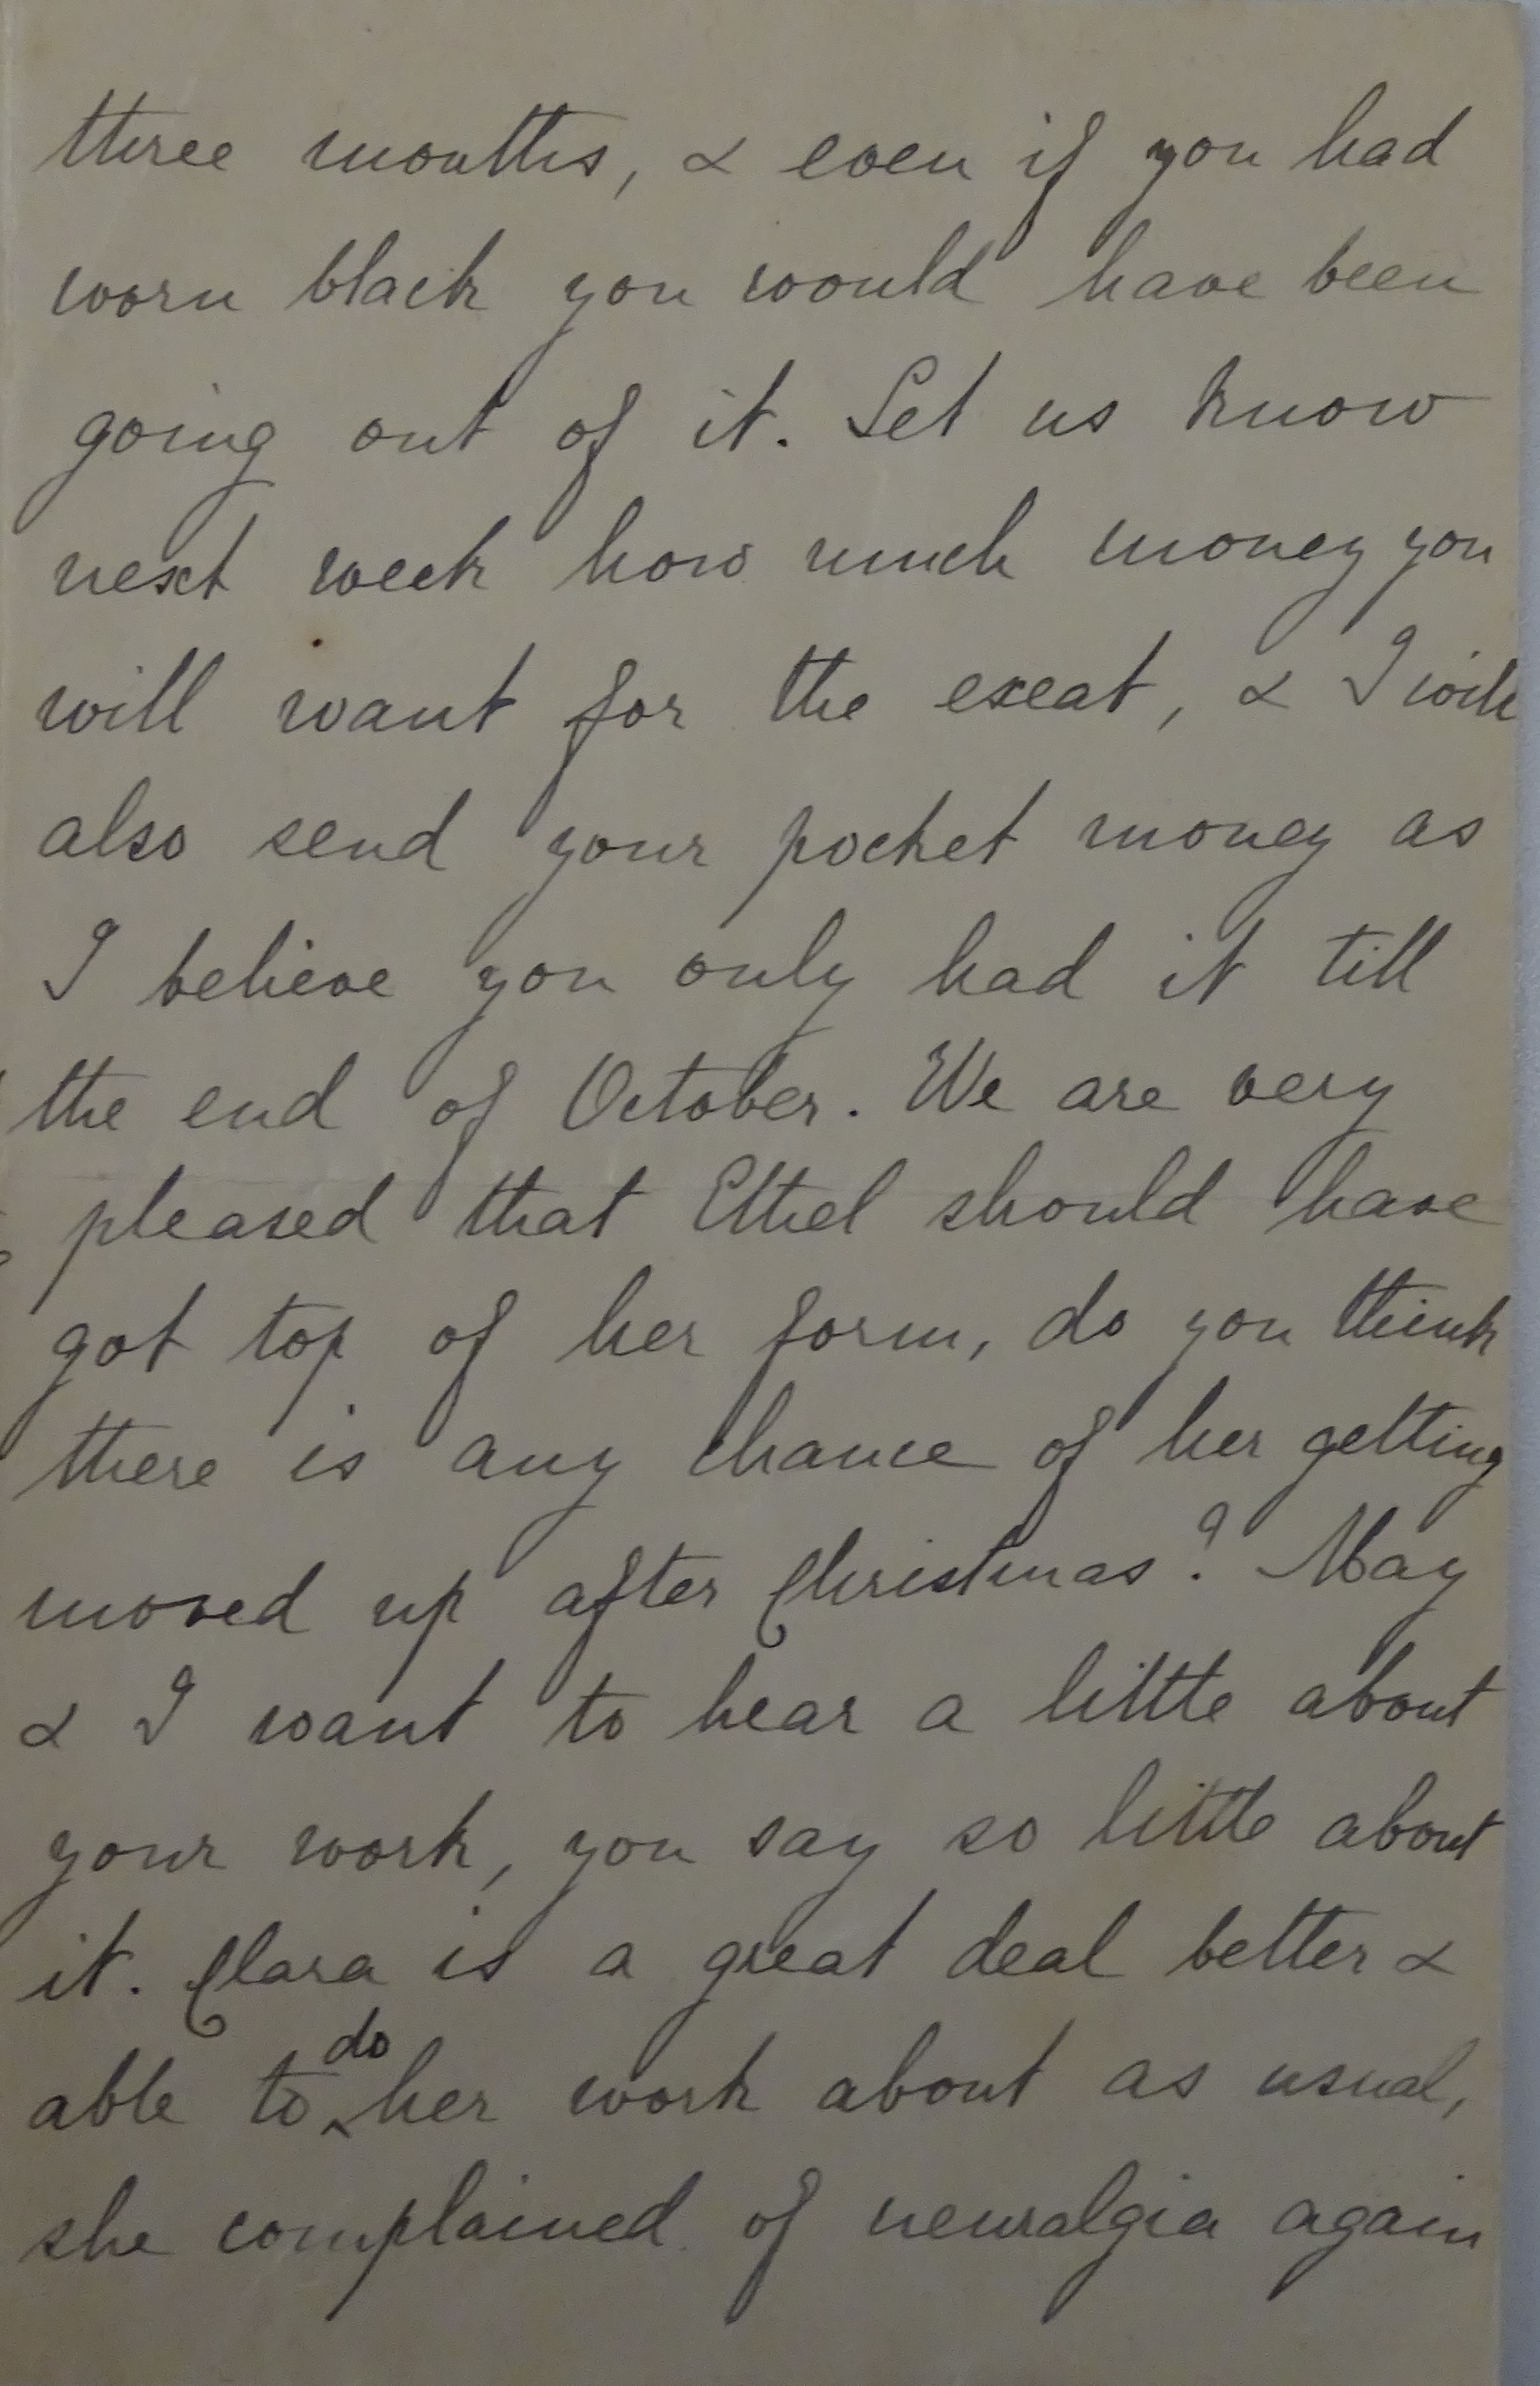 three months, & even if you had
worn black you would have been
going out of it. Let us know
next week how much money you
will want for the exeat, & I will
also send your pocket money as
I believe you only had it till
the end of October. We are very
pleased that Ethel should have
got top of her form, do you think
there is any chance of her getting
moved up after Christmas? May
& I want to hear a little about
your work, you say so little about
it. Clara is a great deal better &
able to do her work about as usual,
she complained of neuralgia again